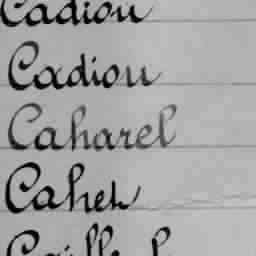 Cadiou
Cadiou
Caharel
Cahen